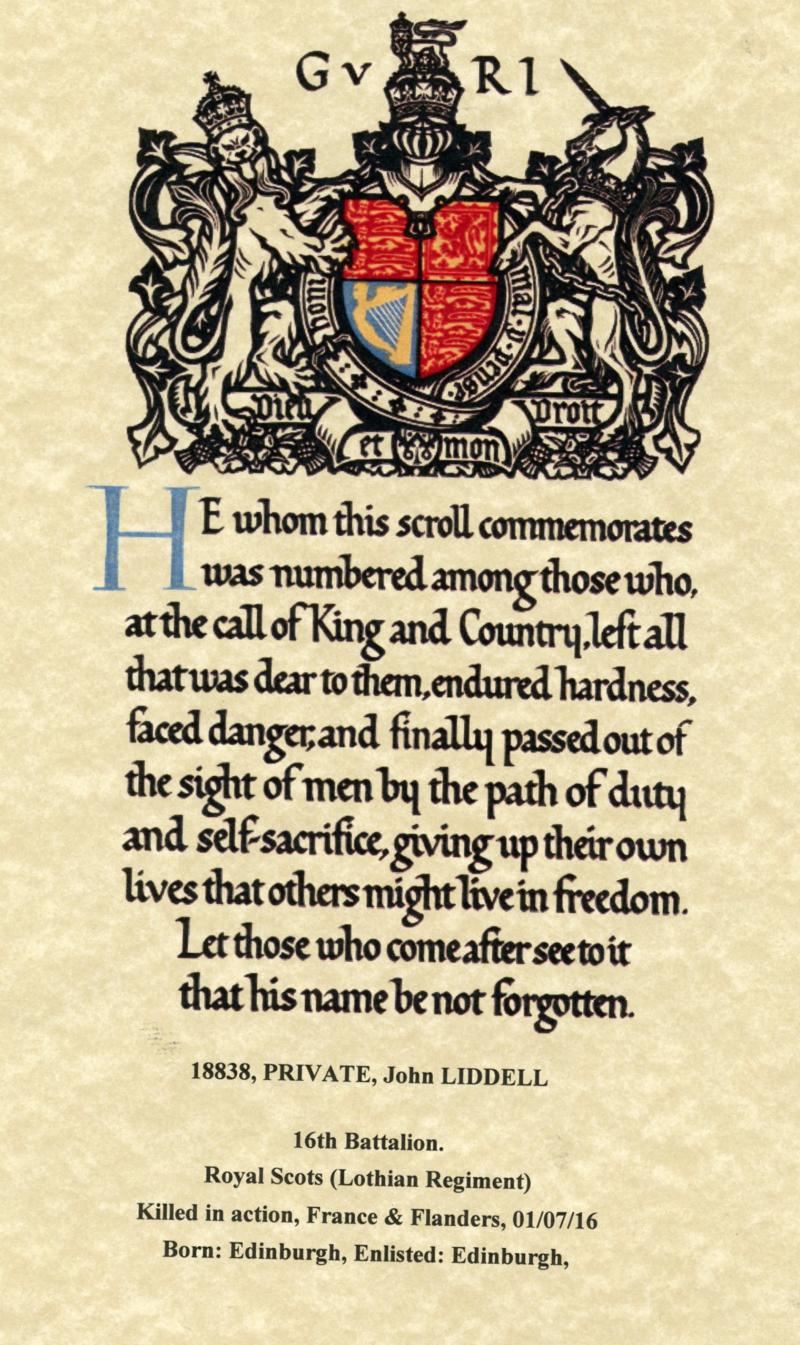 G V R I
hom mal·y·pense
Dieu Droit
et mon
HE whom this scroll commemorates
was numbered among those who,
at the call of King and Country, left all
that was dear to them, endured hardness,
faced danger, and finally passed out of
the sight of men by the path of duty
and self-sacrifice, giving up their own
lives that others might live in freedom.
Let those who come after see to it
that his name be not forgotten.
18838, PRIVATE, John LIDDELL
16th Battalion.
Royal Scots (Lothian Regiment)
Killed in action, France & Flanders, 01/07/16
Born: Edinburgh, Enlisted: Edinburgh,